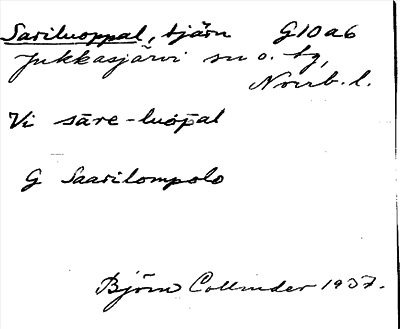 Sariluoppal, tjärn G10a6
Jukkasjärvi sn o. tg,
Norrb. l.
Vi sāre-luōpal
G Saarilompolo
Björn Collinder 1937.